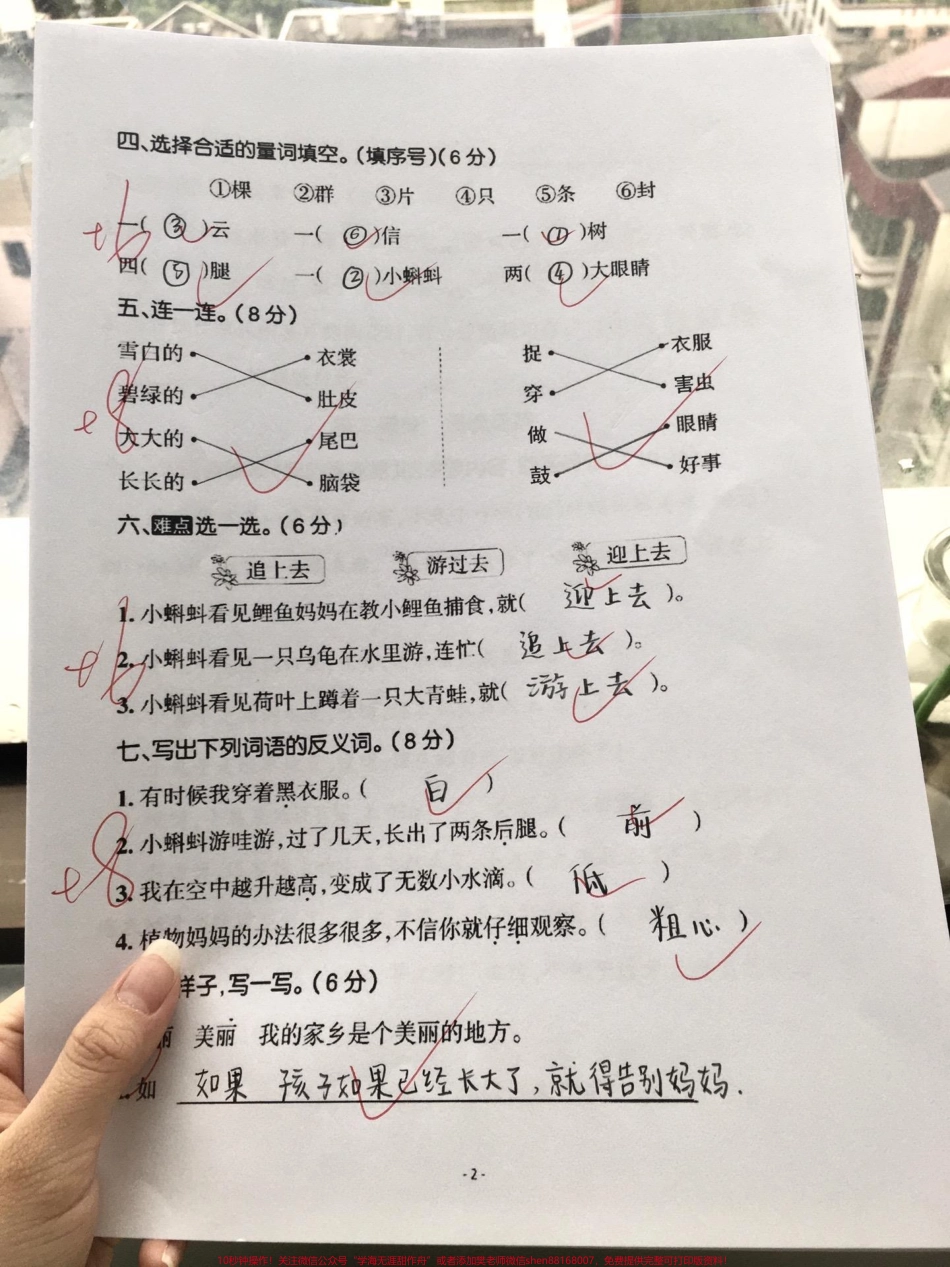 四、选择合适的量词填空。(填序号)(6分)
①棵 ②群 ③片 ④只 ⑤条 ⑥封
+6
一( ③ )云 一( ⑥ )信 一( ① )树
四( ⑤ )腿 一( ② )小蝌蚪 两( ④ )大眼睛
五、连一连。(8分)
+8
雪白的 衣裳 捉 衣服
碧绿的 肚皮 穿 害虫
大大的 尾巴 做 眼睛
长长的 脑袋 鼓 好事
六、难点 选一选。(6分)
追上去 游过去 迎上去
+6
1. 小蝌蚪看见鲤鱼妈妈在教小鲤鱼捕食,就( 迎上去 )。
2. 小蝌蚪看见一只乌龟在水里游,连忙( 追上去 )。
3. 小蝌蚪看见荷叶上蹲着一只大青蛙,就( 游上去 )。
七、写出下列词语的反义词。(8分)
+8
1. 有时候我穿着黑衣服。( 白 )
2. 小蝌蚪游哇游,过了几天,长出了两条后腿。( 前 )
3. 我在空中越升越高,变成了无数小水滴。( 低 )
4. 植物妈妈的办法很多很多,不信你就仔细观察。( 粗心 )
样子,写一写。(6分)
丽 美丽 我的家乡是个美丽的地方。
如 如果 孩子如果已经长大了,就得告别妈妈.
- 2 -
10秒钟操作!关注微信公众号“学海无涯甜作舟”或者添加吴老师微信shen88168007,免费提供完整可打印版资料!